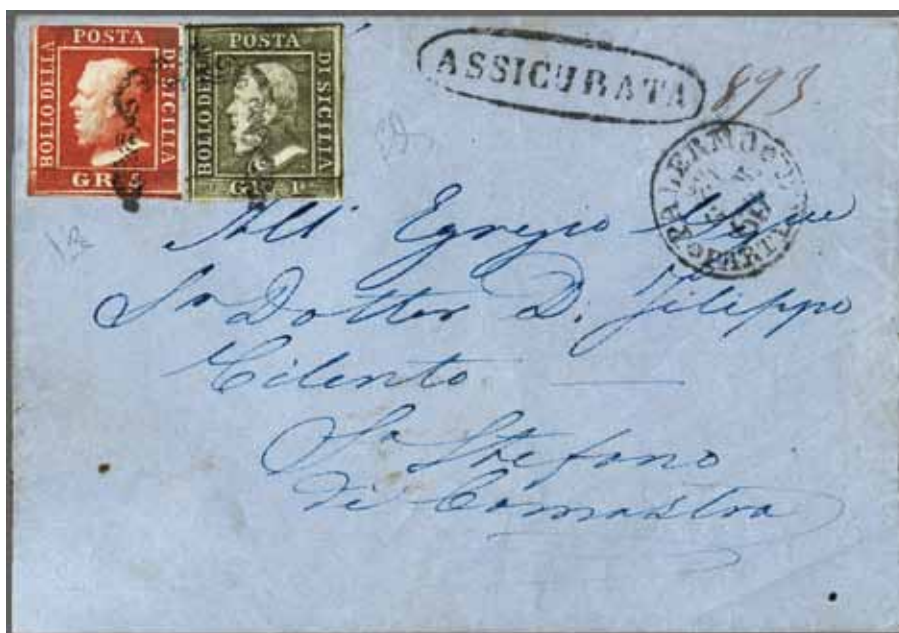 BOLLO DELLA POSTA DI SICILIA
GR. 5
BOLLO DELLA POSTA DI SICILIA
GR. 1
ASSICURATA
893
PALERMO
PARTENZA
All' Egregio
Sr Dottor D. Filippo
Cilento
So Stefano
di Camastra